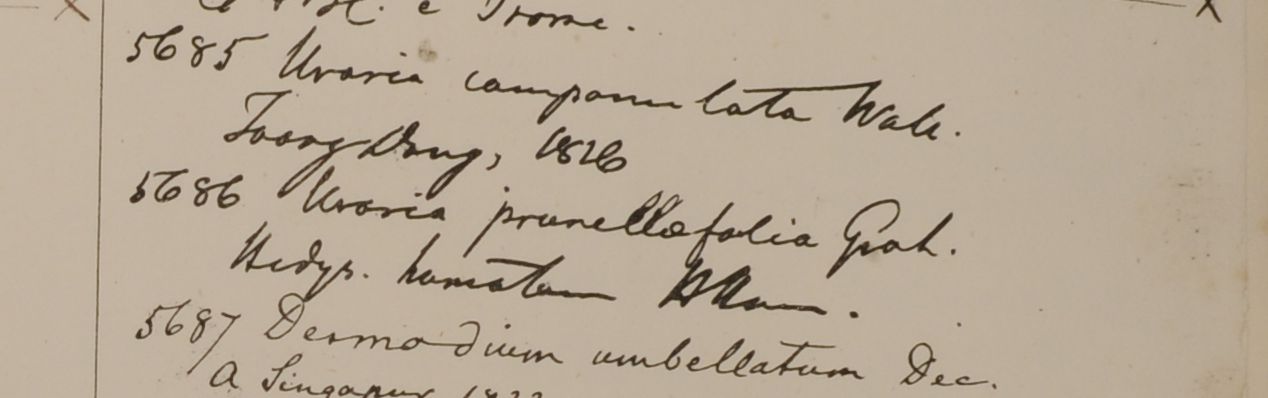 e Prome.
5685 Uraria campanulata Wall.
Toong Dong, 1826
5686 Uraria prunellæfolia Grah.
Hedys. hamatum HHam.
5687 Desmodium umbellatum Dec.
a Singapur 1822